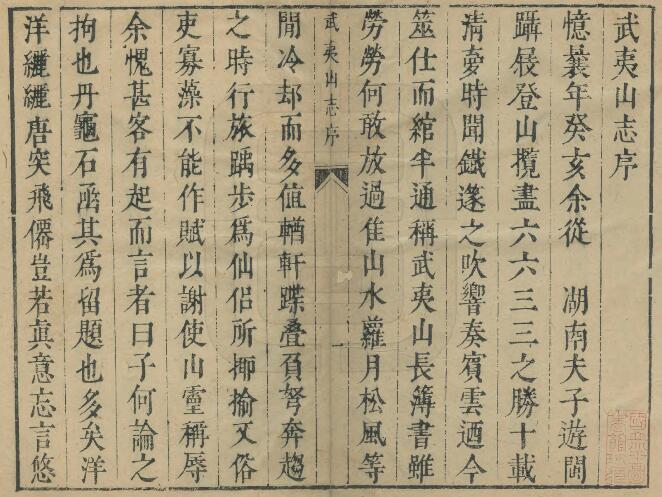 武夷山志序
憶曩年癸亥余從　湖南夫子遊閩
躡屐登山攬盡六六三三之勝十載
清夢時聞鐵邃之吹響奏賓雲迺今
筮仕而綰半通稱武夷山長簿書雖
勞勞何敢放過隹山水蘿月松風等
武夷山志序
一
閒冷却而多值輶軒蹀叠負弩奔趨
之時行旅踽步爲仙侣所揶揄又俗
吏寡藻不能作賦以謝使山靈稱辱
余愧甚客有起而言者曰子何論之
拘也丹竈石函其爲留題也多矣洋
洋纚纚唐突飛僊豈若眞意忘言悠